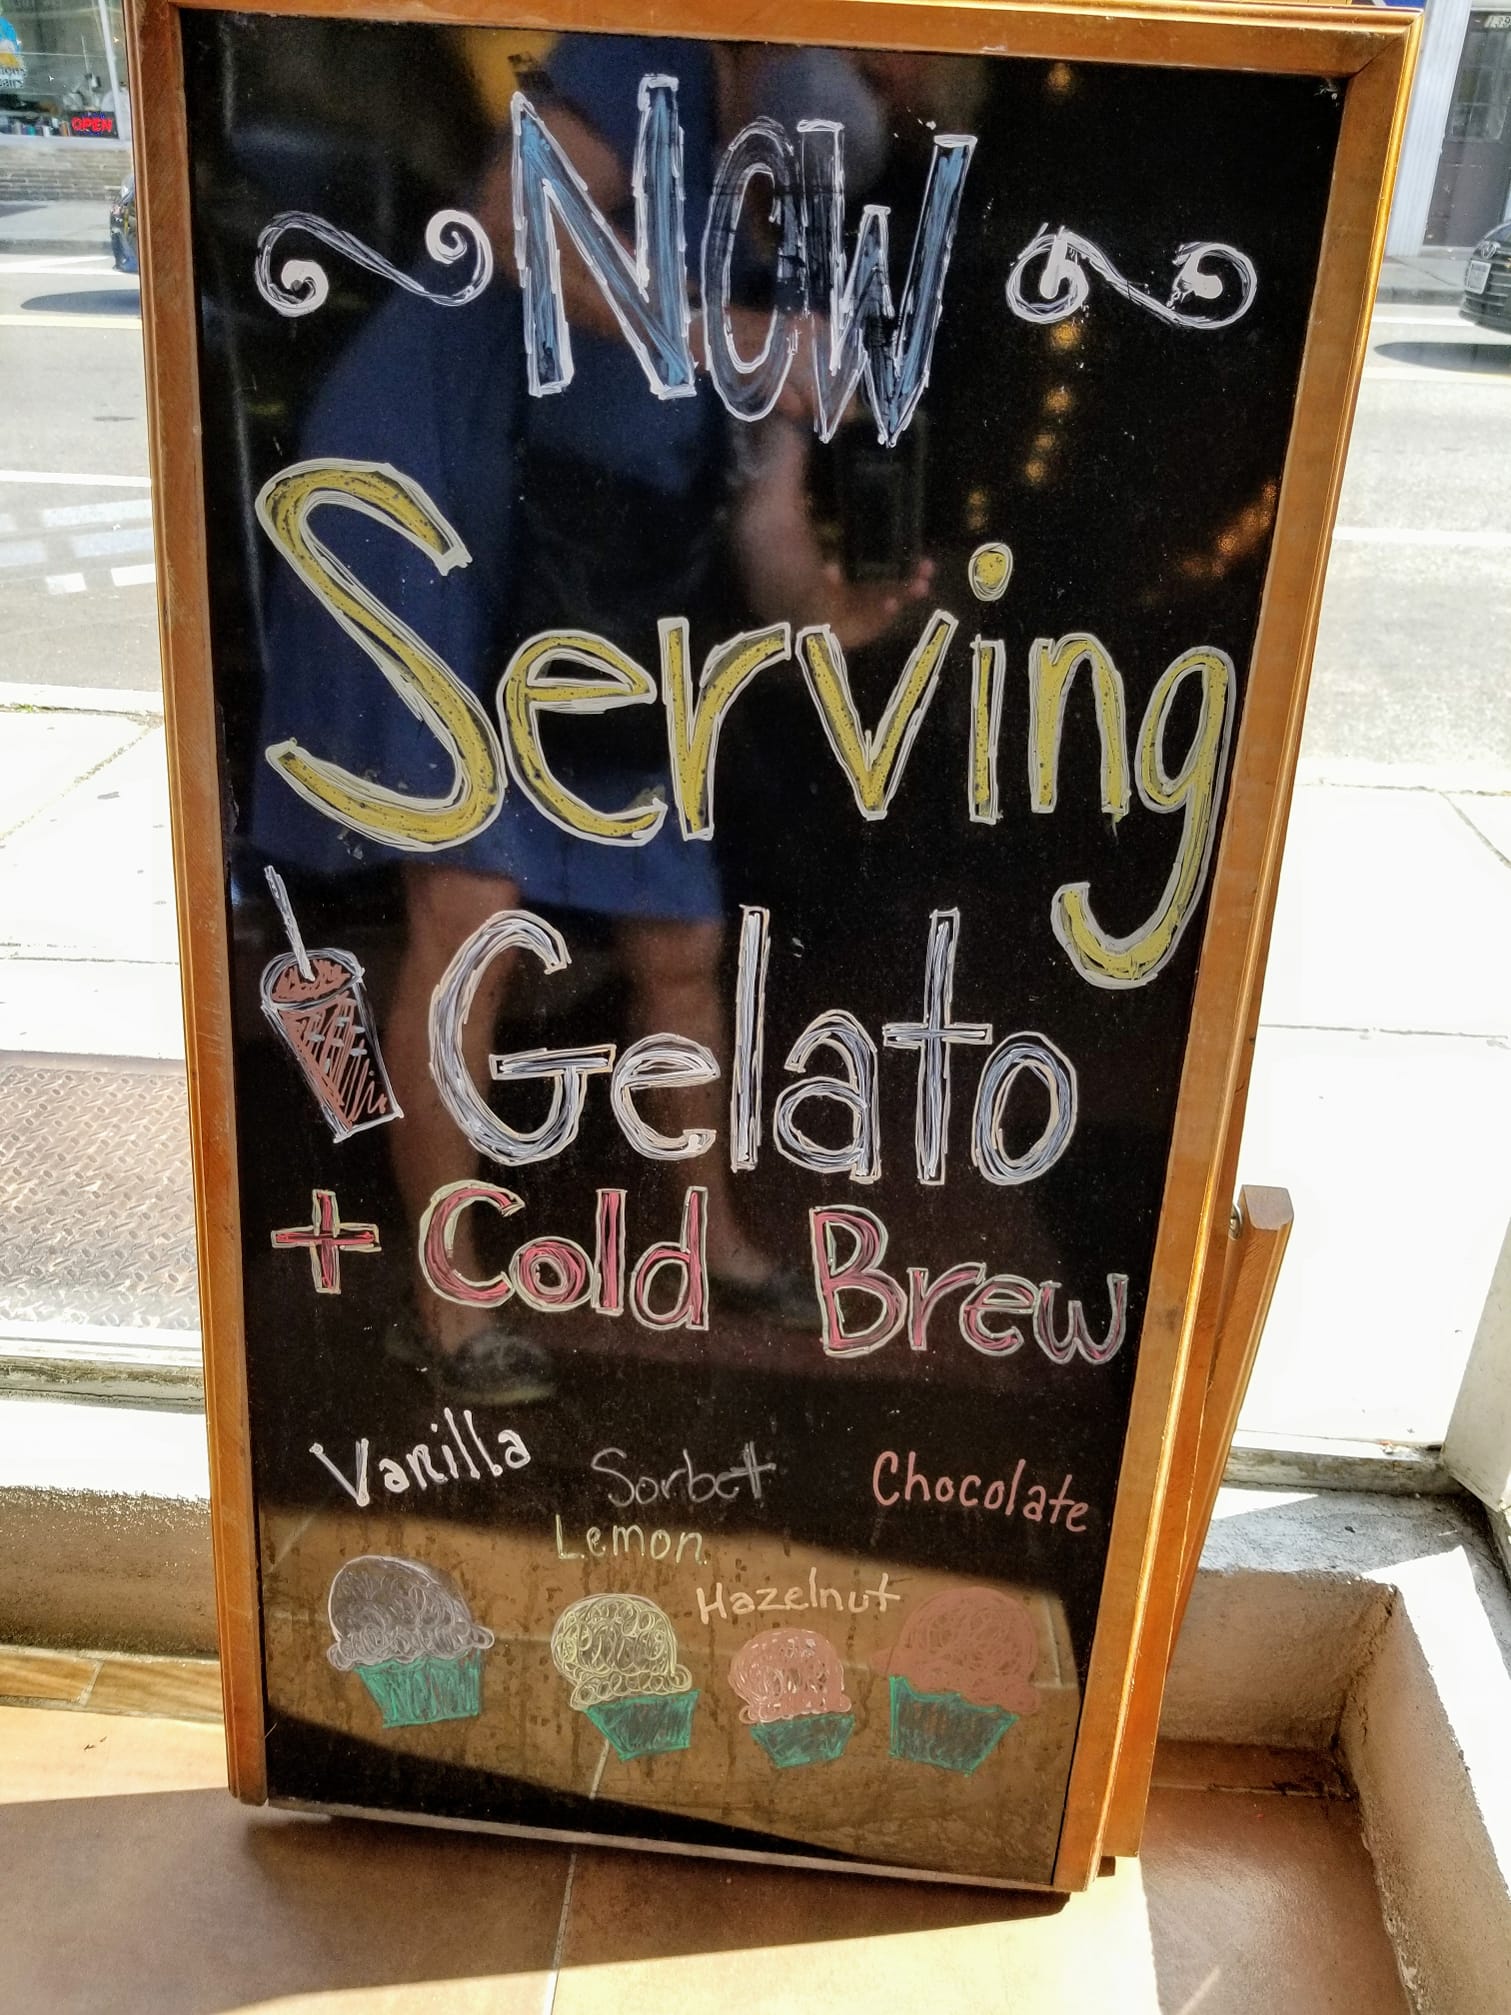 OPEN
Now
Serving
Gelato
+ Cold Brew
Vanilla Sorbet Chocolate
Lemon
Hazelnut